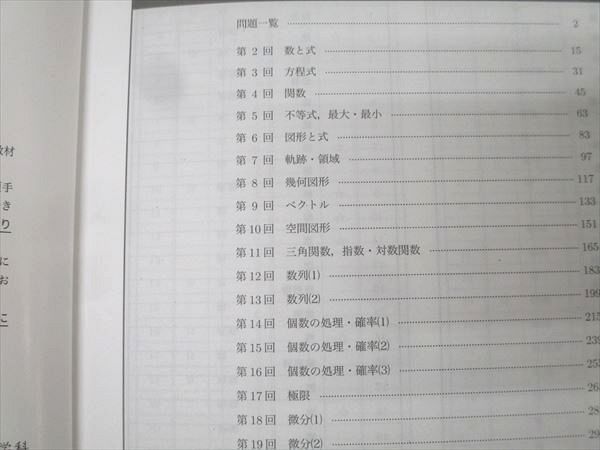 問題一覧 2
第 2 回 数と式 15
第 3 回 方程式 31
第 4 回 関数 45
第 5 回 不等式，最大・最小 63
第 6 回 図形と式 83
第 7 回 軌跡・領域 97
第 8 回 幾何図形 117
第 9 回 ベクトル 133
第10回 空間図形 151
第11回 三角関数，指数・対数関数 165
第12回 数列(1) 183
第13回 数列(2) 199
第14回 個数の処理・確率(1) 215
第15回 個数の処理・確率(2) 239
第16回 個数の処理・確率(3)
第17回 極限
第18回 微分(1)
第19回 微分(2)
材
手
き
り
に
お
こ
学科